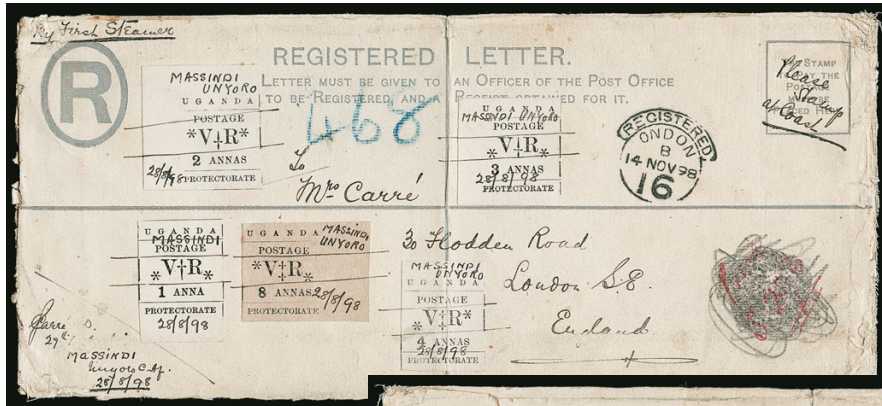 By First Steamer
R
REGISTERED LETTER.
LETTER MUST BE GIVEN TO AN OFFICER OF THE POST OFFICE
TO BE REGISTERED, AND A RECEIPT OBTAINED FOR IT.
STAMP
THE
POSTAGE
Please
Stamp
at Coast
MASSINDI
UNYORO
UGANDA
POSTAGE
*V‡R*
2 ANNAS
28/8/98
PROTECTORATE
468
UGANDA
MASSINDI UNYORO
POSTAGE
*V‡R*
3 ANNAS
28/8/98
PROTECTORATE
REGISTERED
LONDON
B
14 NOV 98
16
To
Mrs Carré
UGANDA
MASSINDI
POSTAGE
*V†R*
1 ANNA
PROTECTORATE
28/8/98
UGANDA
MASSINDI
UNYORO
POSTAGE
*V‡R*
8 ANNAS
28/8/98
PROTECTORATE
30 Flodden Road
London S.E.
England
MASSINDI
UNYORO
UGANDA
POSTAGE
*V‡R*
4 ANNAS
28/8/98
PROTECTORATE
Carré
29th
MASSINDI
Unyoro C. Af.
28/8/98